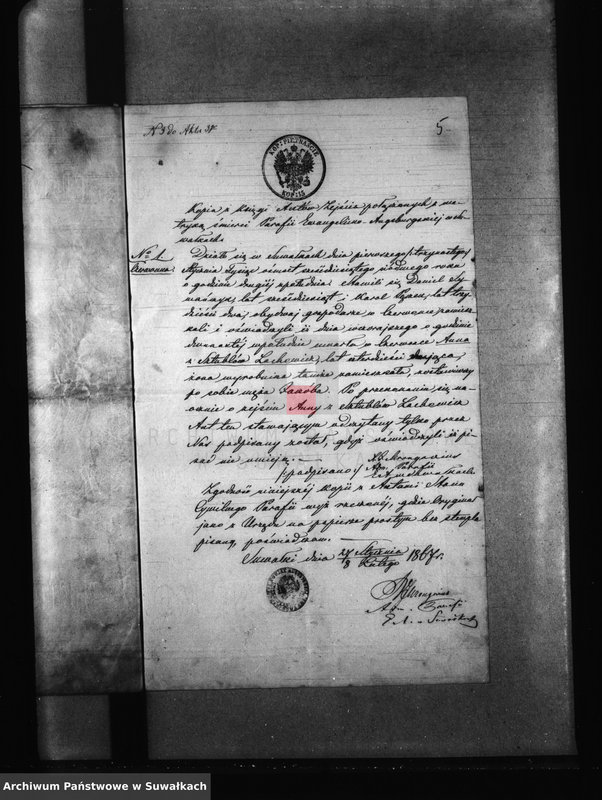 N 3 do Akta 37
5
KOP: PIETNAŚCIE
KOP: 15
Kopia z księgi Aktów Zejścia połączonych z me-
tryką śmierci Parafii Ewangelicko-Augsburgskiej w Su-
wałkach
No 1
Czerwonka.
Działo się w Suwałkach dnia pierwszego/trzynastego/
Stycznia tysiąc ośmset sześćdziesiątego siódmego roku
o godzinie drugiej z południa. Stawili się Daniel
lat sześćdziesiąt i Karol lat trzy-
dzieści dwa, obydwaj gospodarze w Czerwonce zamiesz-
kali i oświadczyli iż dnia wczorajszego o godzinie
dwunastej w południe umarła w Czerwonce Anna
z Sztublów Lachowicz, lat czterdzieści mająca,
żona wyrobnika tamże zamieszkała, zostawiwszy
po sobie męża Jakóba. Po przekonaniu się na-
ocznie o zejściu Anny z Sztublów Lachowicz
Akt ten stawającym odczytany tylko przez
Nas podpisany został, gdyż oświadczyli iż pi-
sać nie umieją. —
/podpisano/ X.
Adm. Parafii
Zgodność niniejszej kopii z Aktami Stanu
Cywilnego Parafii wyż rzeczonej, gdzie Orygina
jano z Urzędu na papierze prostym bez stempla
pisany, poświadczam. —
Suwałki dnia 27 Stycznia / 8 Lutego 1867 r.
Adm. Parafii
E. A. w Suwałkach
Archiwum Państwowe w Suwałkach